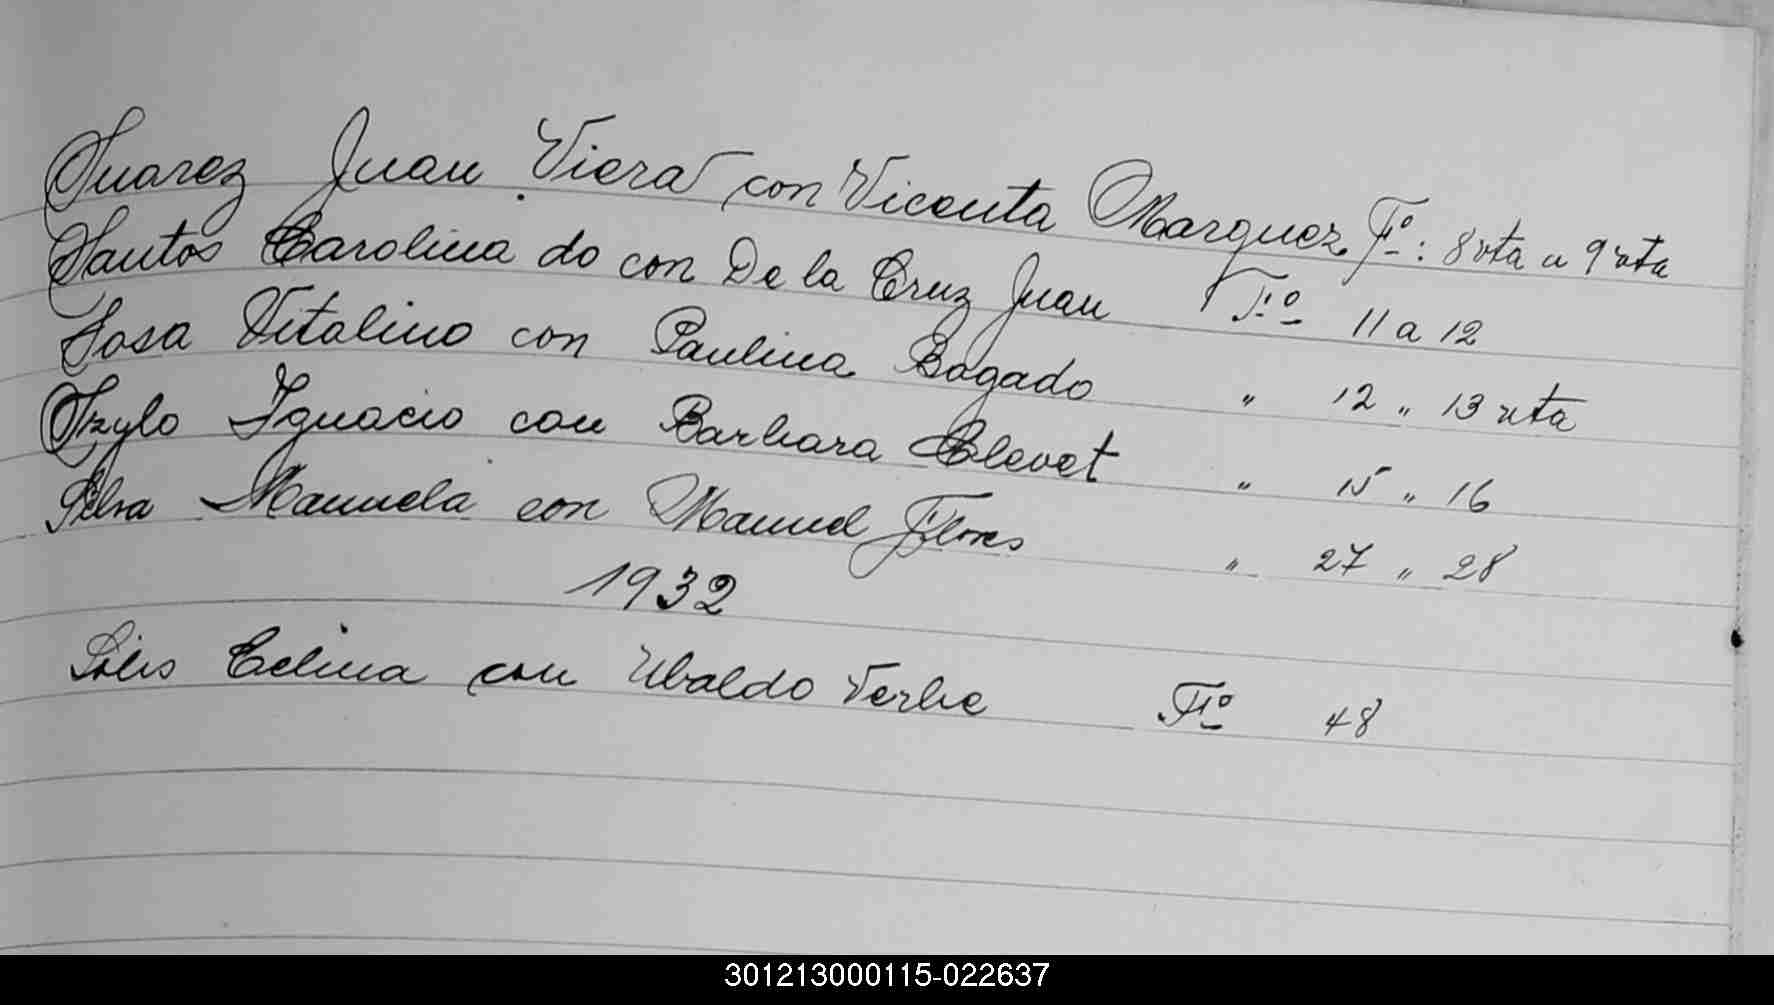 Suarez Juan Viera con Vicenta Marquez Fº: 8 vta a 9 vta
Santos Carolina do con De la Cruz Juan Fº 11 a 12
Sosa Vitalino con Paulina Bogado " 12 " 13 vta
Szylo Ignacio con Barbara Clevet " 15 " 16
Silva Manuela con Manuel Flores " 27 " 28
1932
Solis Celina con Ubaldo Verbe Fº 48
301213000115-022637